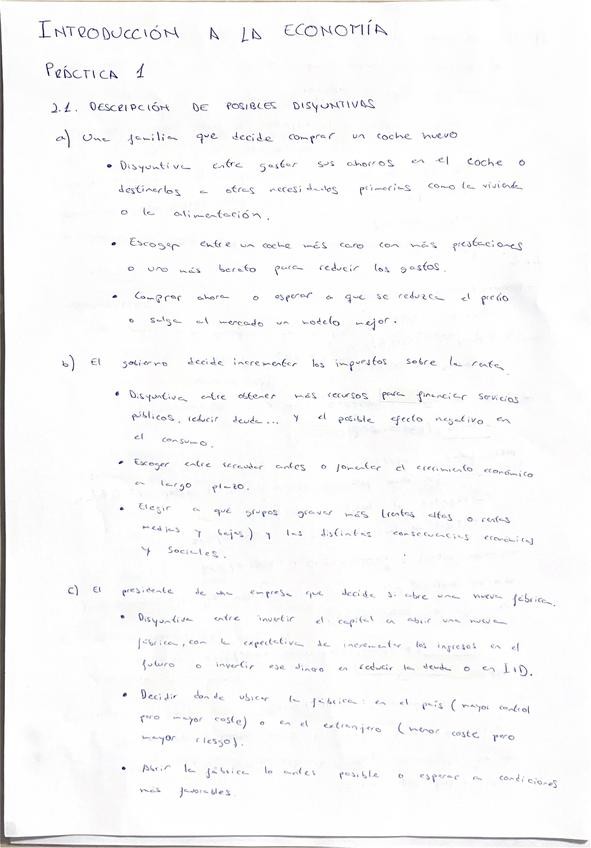 INTRODUCCIÓN A LA ECONOMÍA
PRÁCTICA 1
2.1. DESCRIPCIÓN DE POSIBLES DISYUNTIVAS
a) Una familia que decide comprar un coche nuevo
• Disyuntiva entre gastar sus ahorros en el coche o
destinarlos a otras necesidades primarias como la vivienda
o la alimentación.
• Escoger entre un coche más caro con más prestaciones
o uno más barato para reducir los gastos.
• Comprar ahora o esperar a que se reduzca el precio
o salga al mercado un modelo mejor.
b) El gobierno decide incrementar los impuestos sobre la renta.
• Disyuntiva entre obtener más recursos para financiar servicios
públicos, reducir deuda... y el posible efecto negativo en
el consumo.
• Escoger entre recaudar antes o fomentar el crecimiento económico
a largo plazo.
• Elegir a qué grupos gravar más (rentas altas o rentas
medias y bajas) y las distintas consecuencias económicas
y sociales.
c) El presidente de una empresa que decide si abre una nueva fábrica.
• Disyuntiva entre invertir el capital en abrir una nueva
fábrica, con la expectativa de incrementar los ingresos en el
futuro o invertir ese dinero en reducir la deuda o en I+D.
• Decidir donde ubicar la fábrica: en el país (mayor control
pero mayor coste) o en el extranjero (menor coste pero
mayor riesgo).
• Abrir la fábrica lo antes posible o esperar a condiciones
más favorables.